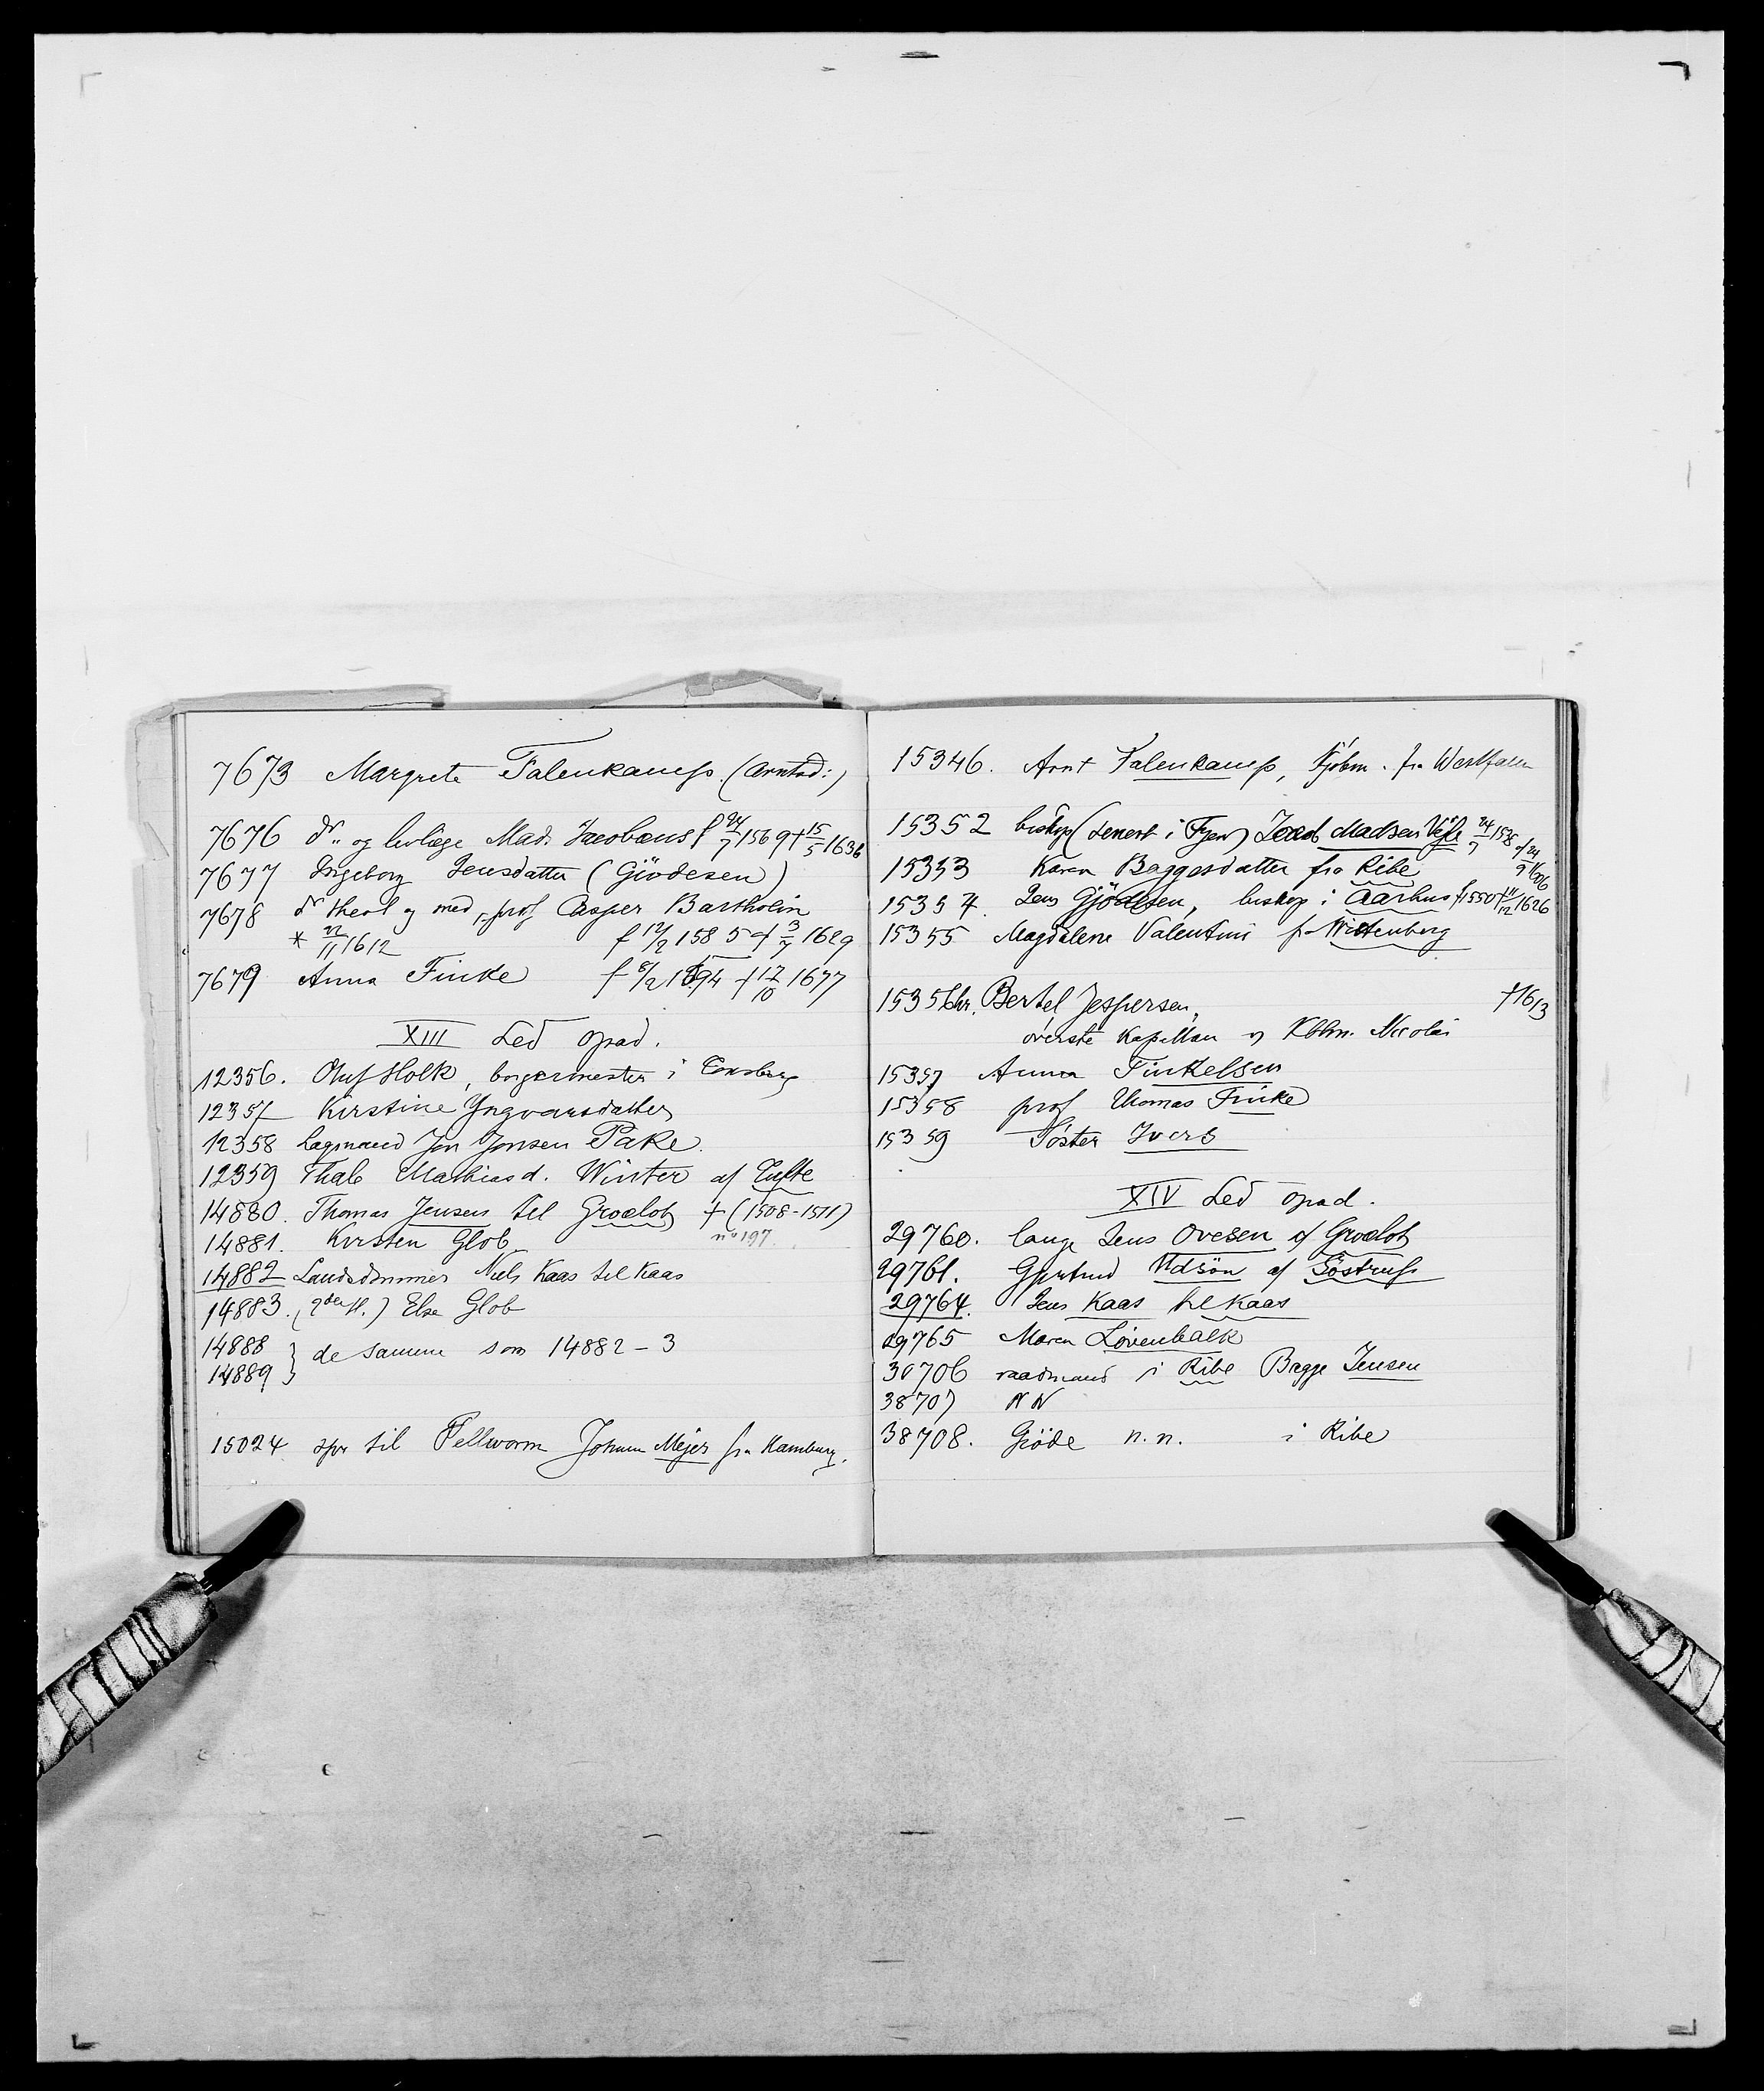 7673 Margrete Falenkamp. (Arntsd:)
7676 dr. og livlæge Mad. Jacobæus f 24/7 1569 † 15/5 1636
7677 Ingeborg Jensdatter (Giödesen)
7678 dr theol og med, prof Casper Bartholin
* 22/11 1612 f 12/2 1585 † 3/7 1629
7679 Anna Finke f 8/2 1594 † 17/10 1677
XIII Led opad.
12356. Oluf Holk, borgermester i Tønsberg
12357 Kirstine Yngvarsdatter
12358 Lagmand Jon Jonsen Pake.
12359 Thale Mathiasd. Winter af Tufte
14880. Thomas Jensen til Grodol † (1508-1511)
14881. Kirsten Glob no 197
14882 Landsdommer Niels Kaas til Kaas
14883. (2den H.) Else Glob
14888
14889 } de samme som 14882-3
15024 til Pellworm Johann Mejer fra Hamburg.
15346. Arnt Falenkamp, Kjöbm. fra Westfalen
15352 biskop (senest i Fyen) Jacob Madsen Vejle 24/7 1538 † 24/9 1606
15353 Karen Baggesdatter fra Ribe
15354. Jens Gjödesen, biskop i Aarhus f 1550 † 11/12 1626
15355 Magdalene Valentini fr Wittenberg
15356 hr. Bertel Jespersen, † 1613
överste Kapellan v Kbhn. Nicolai
15357 Anna Finkelsen
15358 prof Thomas Finke
15359 Söster Ivers
XIV Led opad.
29760. lange Jens Ovesen af Grodol
29761. Gjertrud Udsön af Töstrup
29764. Jens Kaas til Kaas
29765 Maren Lövenbalk
30706 raadmand i Ribe Bagge Jensen
38707 N N
38708. Giöde n.n. i Ribe